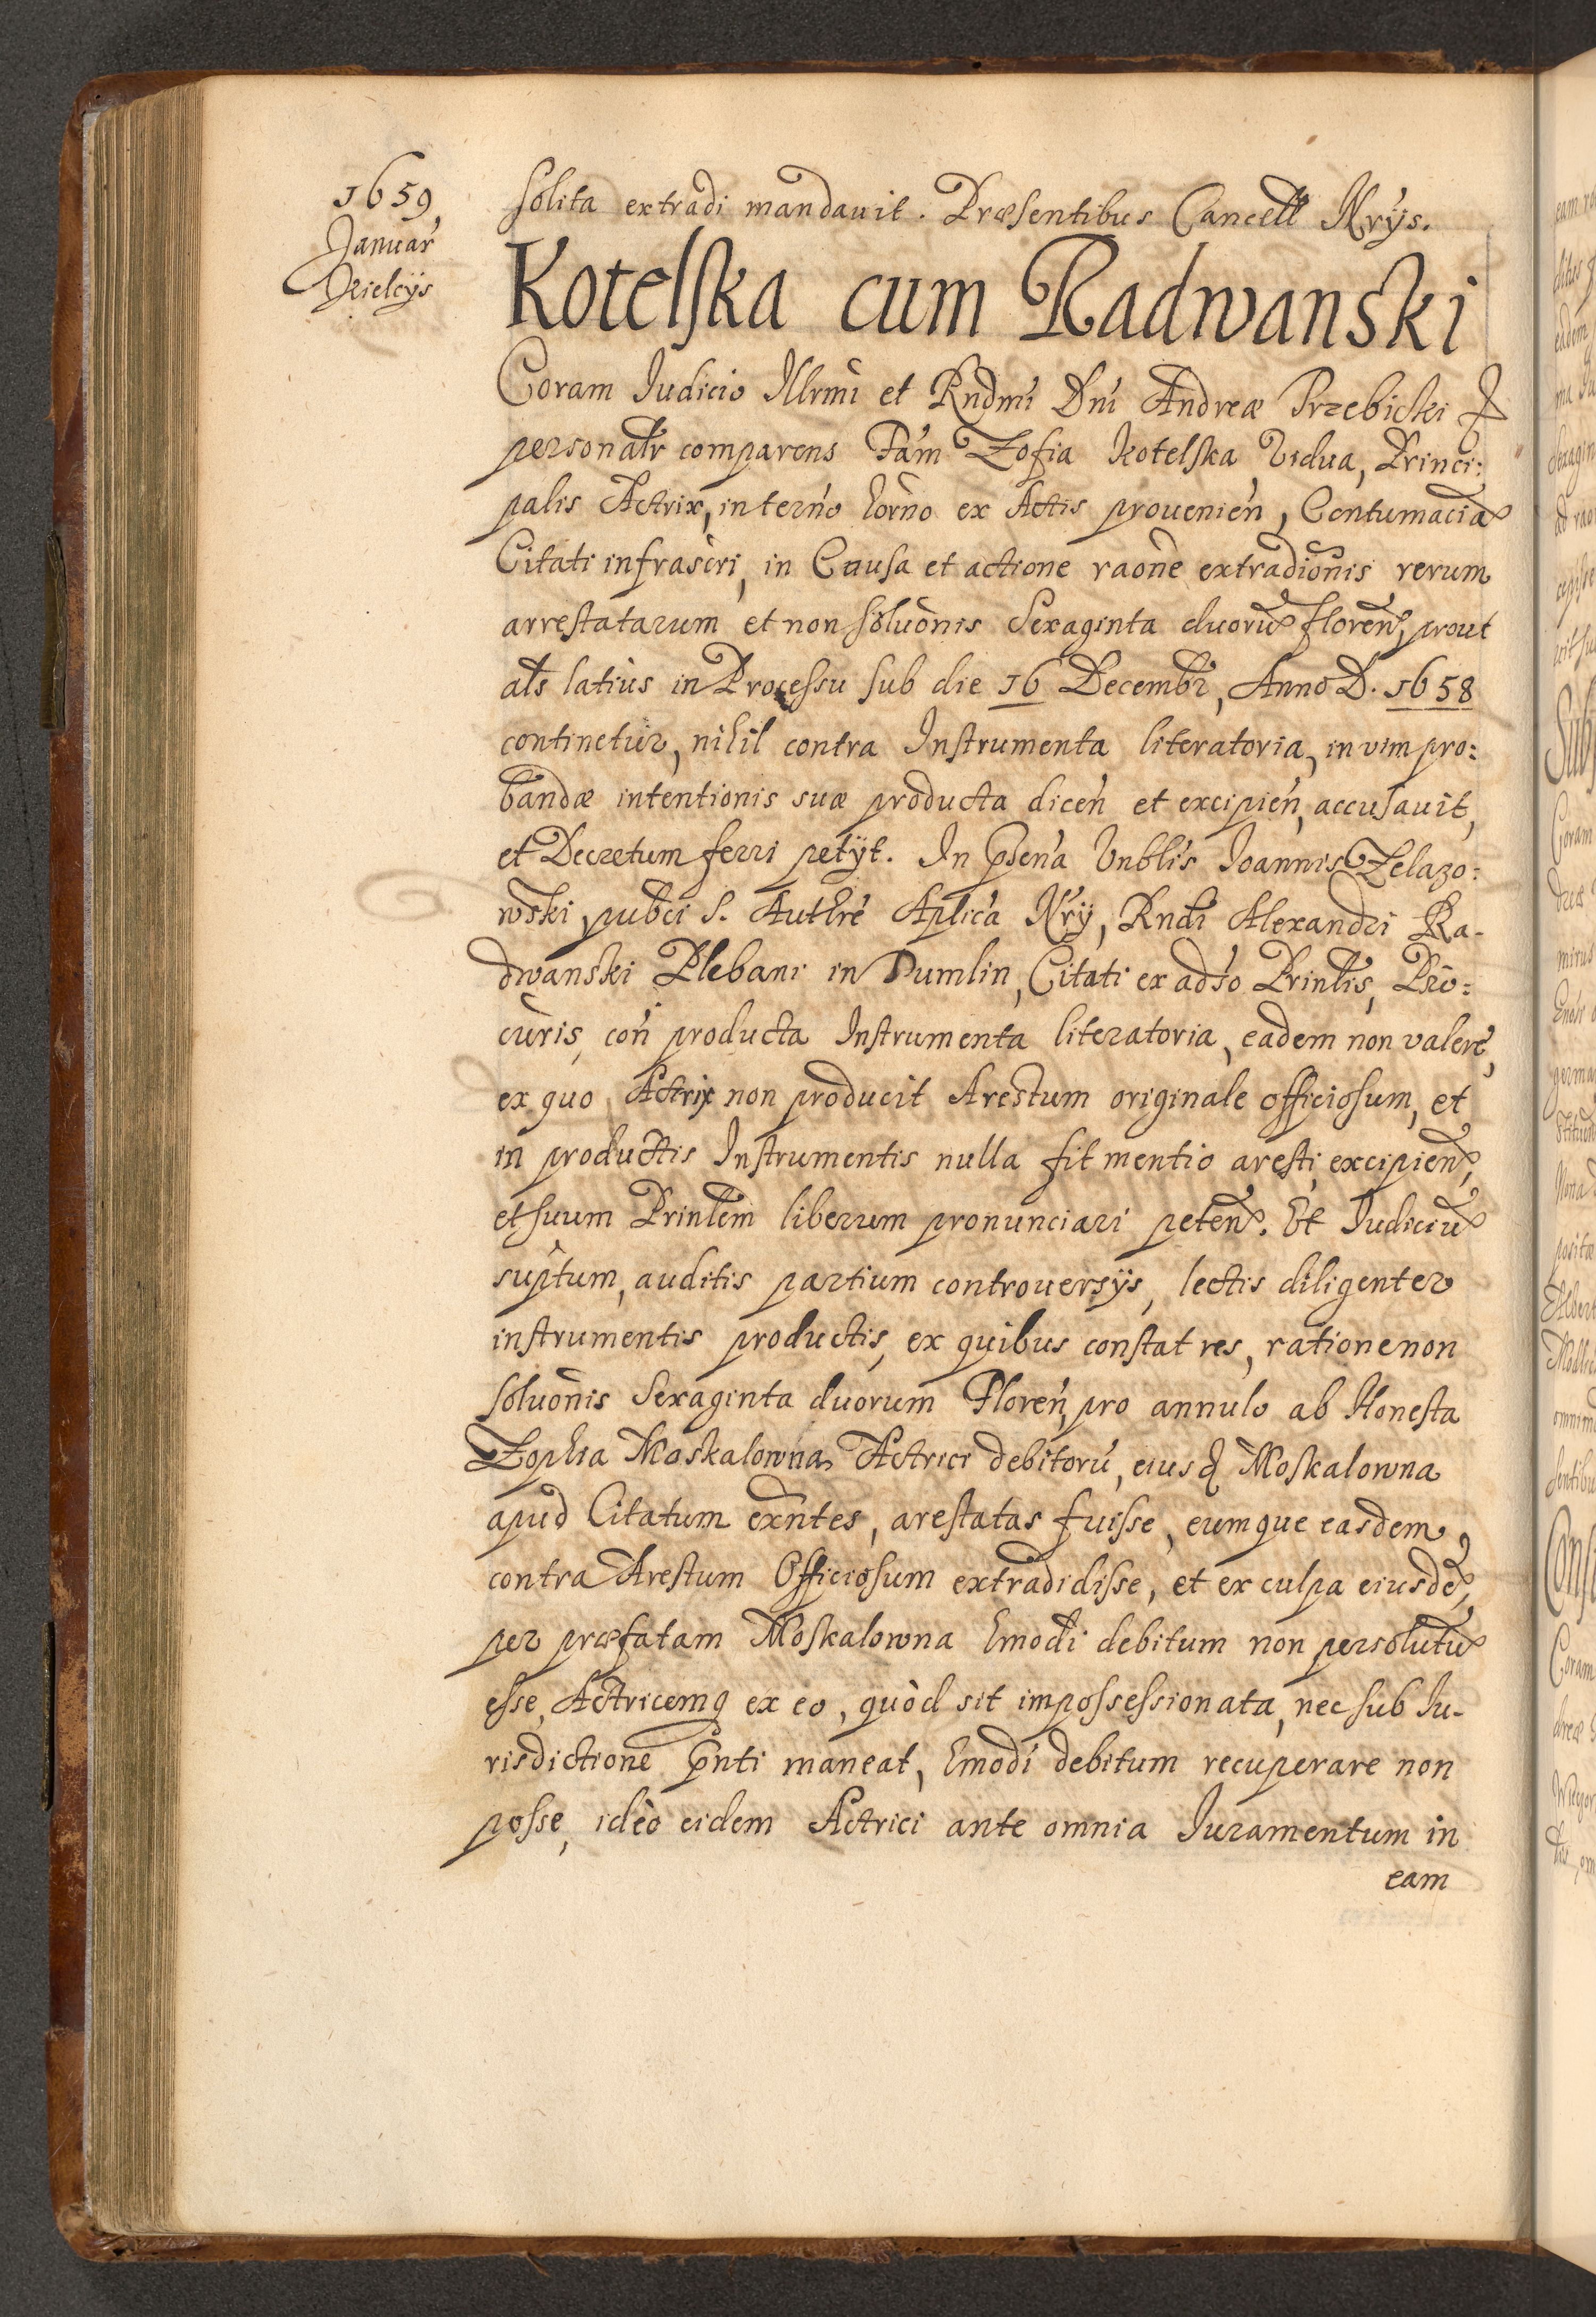 1659,
Januar
Kielcÿs
Solita extradi mandavit. Præsentibus Cancell Nrÿs.
Kotelska cum Radwanski
Coram Iudicio Illrmi et Rndmi Dni Andreæ Przebicki
personalr comparens Fam Zofia Kotelska Vidua, Princi:
palis Actrix, in termo horno ex Actis prouenien, Contumacia
Citati infrascri, in Causa et actione raone extradionis rerum
arrestatarum et non soluonis Sexaginta duoru floren, prout
als latius in Processu sub die 16 Decembr, Anno D. 1658
continetur, nihil contra Instrumenta literatoria, in vim pro:
bandæ intentionis suæ producta dicen et excipien, accusauit,
et Decretum ferri petÿt. In pñena Vnblis Ioannis Zelazo:
wski, pubci S. Authre Aplica Nrÿ, Rndi Alexandri Ra-
dwanski Plebani in Dumlin, Citati ex adto Prinlis, Pro:
curis, con producta Instrumenta literatoria, eadem non valere,
ex quo Actrix non producit Arestum originale officiosum, et
in productis Instrumentis nulla fit mentio aresti, excipien,
et suum Prinlem liberum pronunciari peten. Et Iudiciu
suptum, auditis partium controuersÿs, lectis diligenter
instrumentis productis, ex quibus constat res, ratione non
soluonis Sexaginta duorum Floren, pro annulo ab Honesta
Zophia Moskalowna Actrici debitoru, eiusq Moskalowna
apud Citatum exntes, arestatas fuisse, eumque easdem
contra Arestum Officiosum extradidisse, et ex culpa eiusde,
per præfatam Moskalowna hmodi debitum non persolutu
esse, Actricemq ex eo, quòd sit impossessionata, nec sub Iu-
risdictione pnti maneat, hmodi debitum recuperare non
posse, ideò eidem Actrici ante omnia Iuramentum in
eam